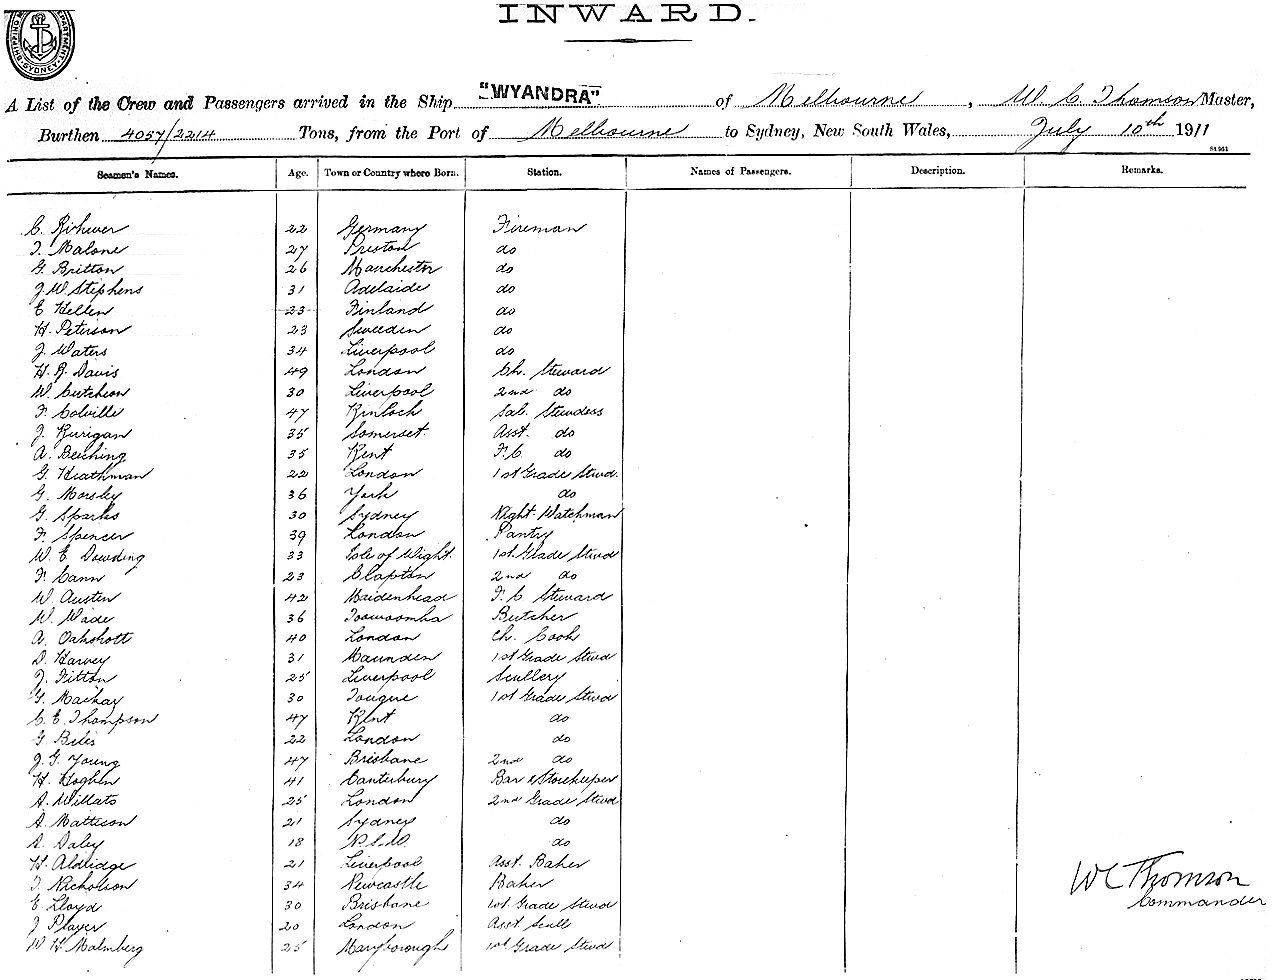 INWARD.
SHIPPING MASTER'S DEPARTMENT SYDNEY
A List of the Crew and Passengers arrived in the Ship "WYANDRA" of Melbourne, W. C. Thomson Master,
Burthen 4057/2214 Tons, from the Port of Melbourne to Sydney, New South Wales, July 10th 1911
St 951
Seamen's Names. Age. Town or Country where Born. Station. Names of Passengers. Description. Remarks.
C. 22 Germany Fireman
T. Malone 27 Preston do
G. Britton 26 Manchester do
J. W Stephens 31 Adelaide do
E Hellen 23 Finland do
H. Peterson 23 Sweeden do
J. Waters 34 Liverpool do
H. R. Davis 49 London Ch. Steward
W. Cutcheon 30 Liverpool 2nd do
F. Colville 47 Kinloch Sal. Stewdess
J. Kurigan 35 Somerset Asst. do
A. Beiching 35 Kent F. C. do
G. Heathman 22 London 1st Grade Stewd.
G. Morsley 36 York do
G. Sparks 30 Sydney Night Watchman
F. Spencer 39 London Pantry
W. E. Dowding 33 Isle of Wight. 1st. Grade Stewd
F. Cann 23 Clapton 2nd do
W. Austen 42 Maidenhead F. C Steward
W. Wade 36 Toowoomba Butcher
A. Oakshott 40 London Ch. Cook
D. Harvey 31 Maunden 1st Grade Stewd
J. Fitton 25 Liverpool Scullery
G. Mackay 30 Tongue 1st Grade Stewd
C. E. Thompson 47 Kent do
G. Biles 22 London do
J. G. Young 47 Brisbane 2nd do
H. Hogben 41 Canterbury Bar & Storekeeper
A. Willats 25 London 2nd Grade Stewd
A. Matteson 21 Sydney do
A. Daley 18 N.S.W. do
H. Aldridge 21 Liverpool Asst. Baker
T. Nicholson 34 Newcastle Baker
E Lloyd 30 Brisbane 1st. Grade Stewd
J Player 20 London Asst Scull
W H Malmberg 25 Maryborough 1st Grade Stewd
W C Thomson
Commander